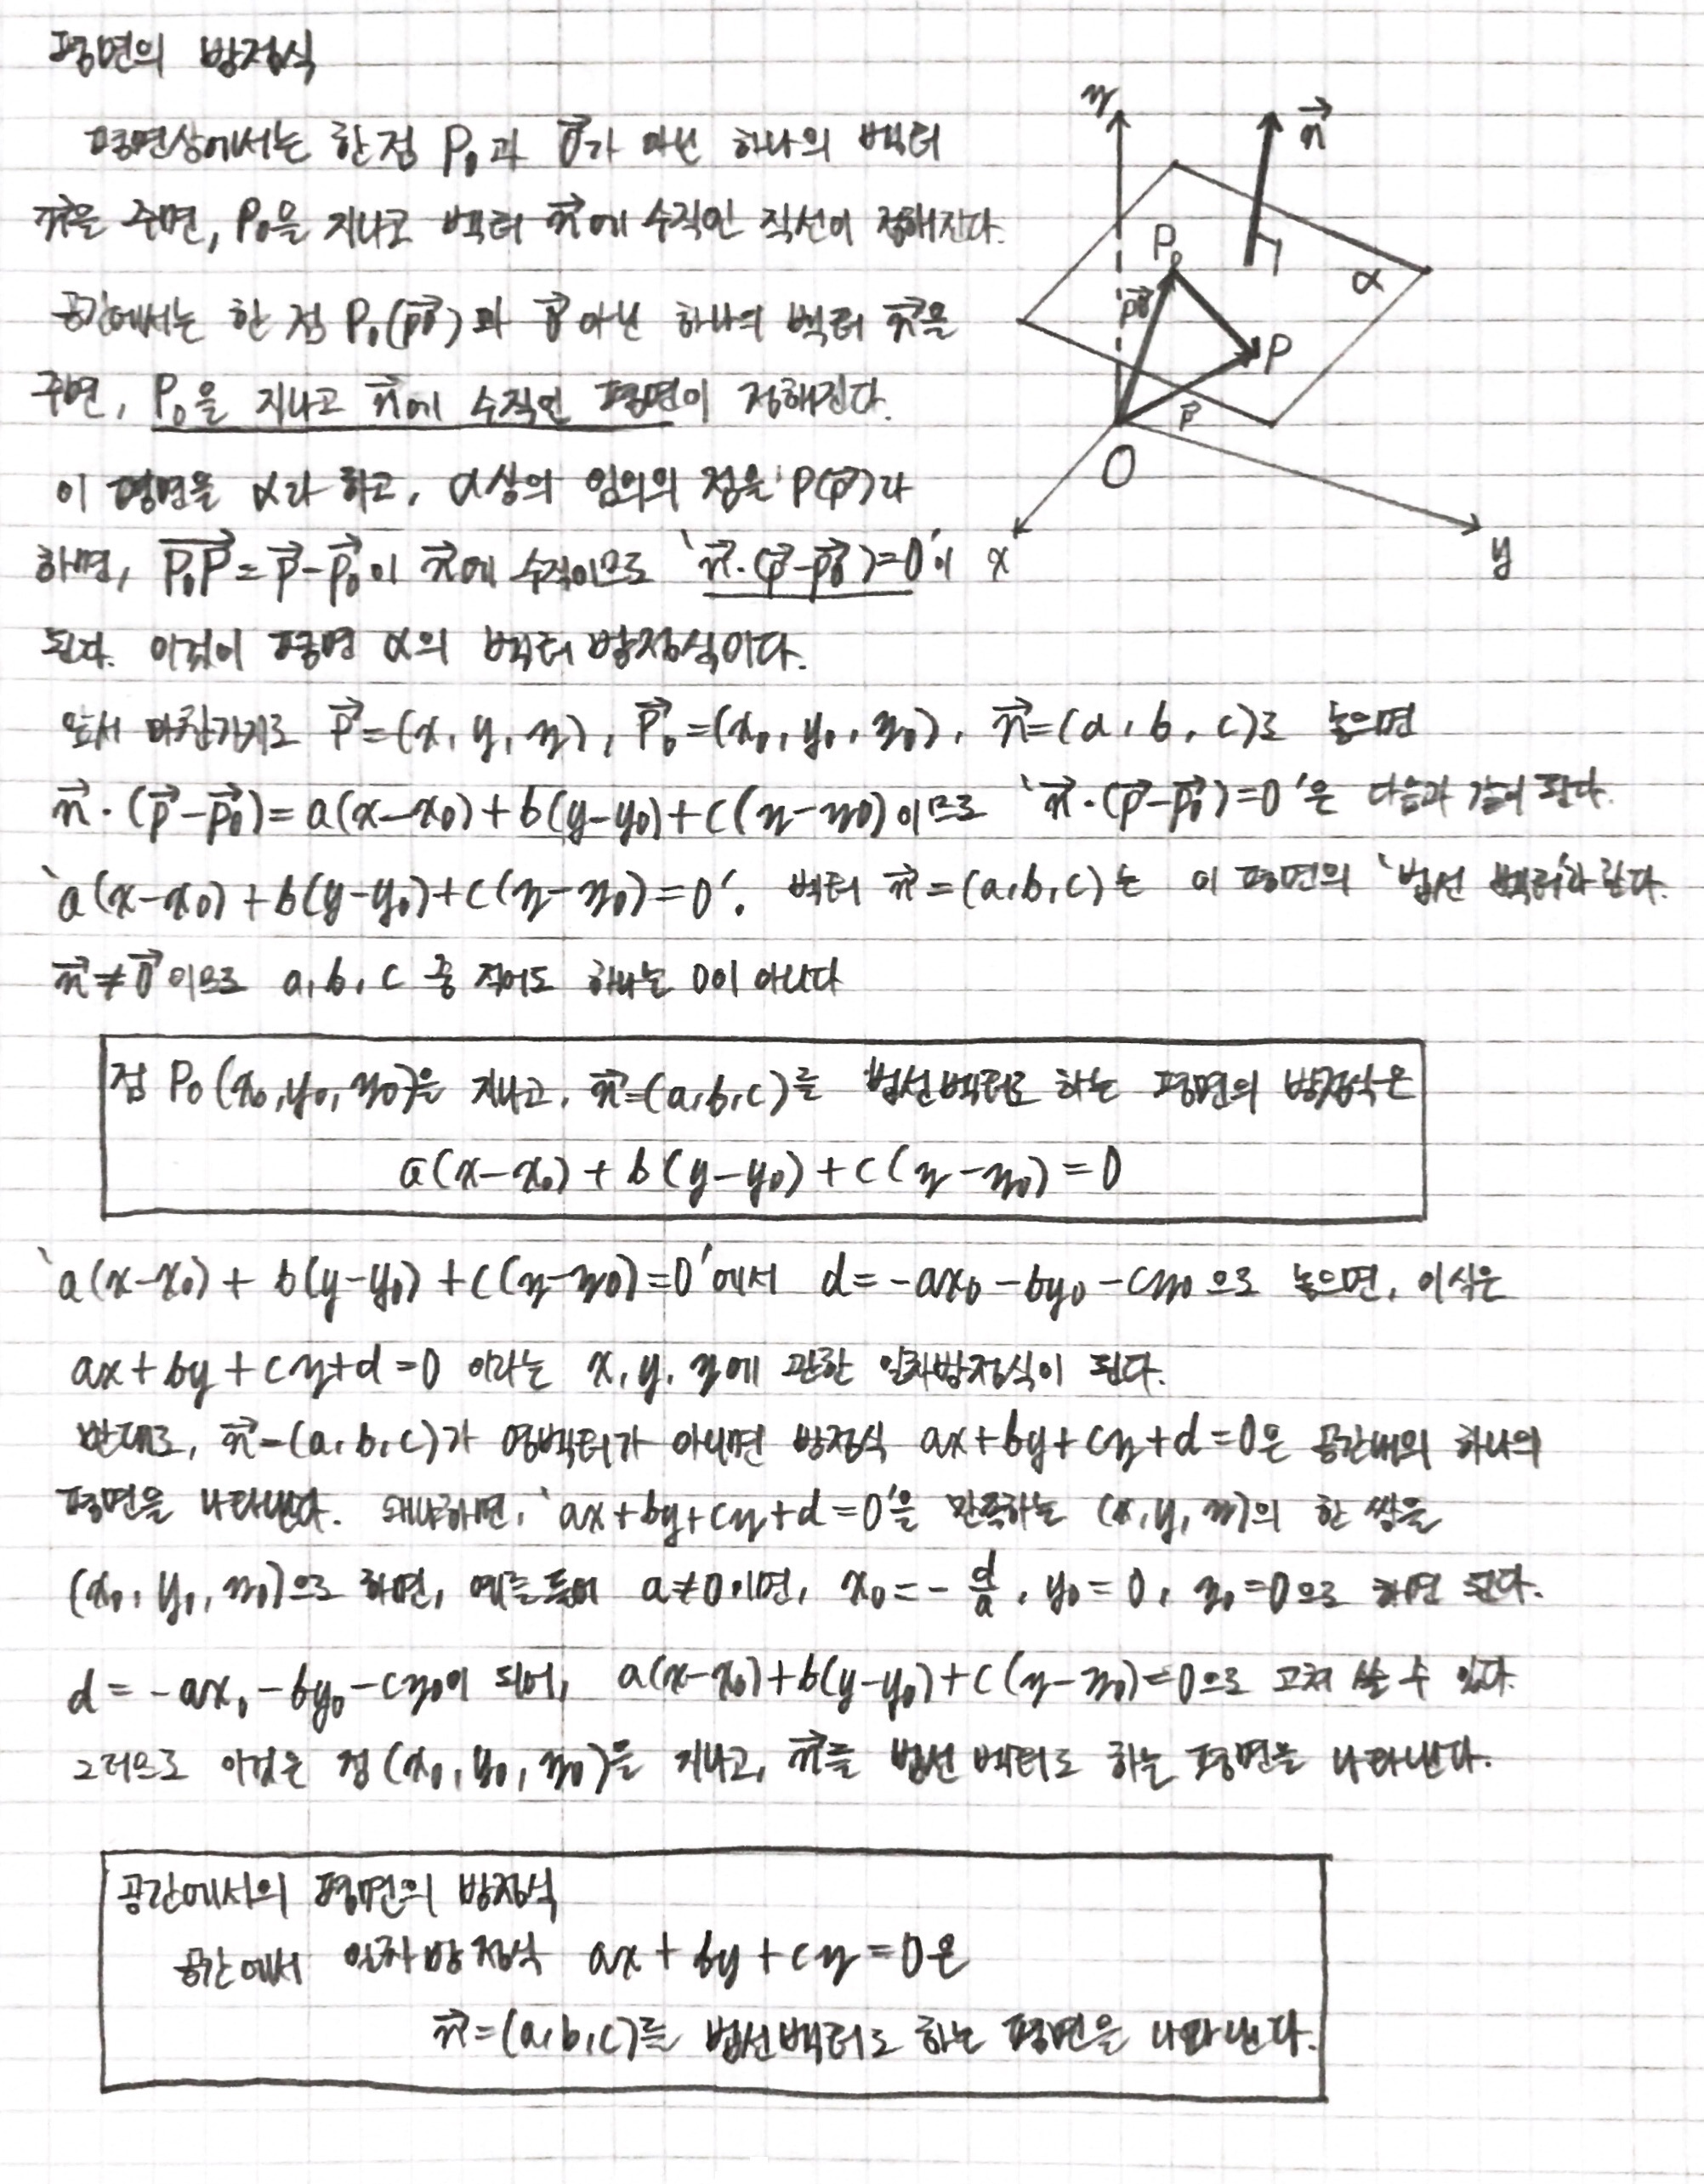 평면의 방정식
평면상에서는 한 점 P₀과 0⃗가 아닌 하나의 벡터
n⃗을 주면, P₀을 지나고 벡터 n⃗에 수직인 직선이 정해진다.
공간에서는 한 점 P₀(p₀⃗)과 0⃗ 아닌 하나의 벡터 n⃗을
주면, P₀을 지나고 n⃗에 수직인 평면이 정해진다.
이 평면을 α라 하고, α상의 임의의 점을 P(p⃗)라
하면, P₀P⃗ = p⃗ - p₀⃗이 n⃗에 수직이므로 ‘n⃗·(p⃗-p₀⃗)=0’이
된다. 이것이 평면 α의 벡터 방정식이다.
z
n⃗
P₀
α
p₀⃗
P
p⃗
O
x
y
앞서 마찬가지로 p⃗=(x, y, z), p₀⃗=(x₀, y₀, z₀), n⃗=(a, b, c)로 놓으면
n⃗·(p⃗-p₀⃗)=a(x-x₀)+b(y-y₀)+c(z-z₀)이므로 ‘n⃗·(p⃗-p₀⃗)=0’은 다음과 같이 된다.
‘a(x-x₀)+b(y-y₀)+c(z-z₀)=0’. 벡터 n⃗=(a,b,c)는 이 평면의 ‘법선 벡터’라 한다.
n⃗≠0⃗이므로 a, b, c 중 적어도 하나는 0이 아니다
점 P₀(x₀,y₀,z₀)을 지나고, n⃗=(a,b,c)를 법선벡터로 하는 평면의 방정식은
a(x-x₀)+b(y-y₀)+c(z-z₀)=0
‘a(x-x₀)+b(y-y₀)+c(z-z₀)=0’에서 d=-ax₀-by₀-cz₀으로 놓으면, 이 식은
ax+by+cz+d=0 이라는 x, y, z에 관한 일차방정식이 된다.
반대로, n⃗=(a, b, c)가 영벡터가 아니면 방정식 ax+by+cz+d=0은 공간내의 하나의
평면을 나타낸다. 왜냐하면, ‘ax+by+cz+d=0’을 만족하는 (x, y, z)의 한 쌍을
(x₀, y₀, z₀)으로 하면, 예를 들어 a≠0이면, x₀=-d/a, y₀=0, z₀=0으로 하면 된다.
d=-ax₀-by₀-cz₀이 되어, a(x-x₀)+b(y-y₀)+c(z-z₀)=0으로 고쳐 쓸 수 있다.
그러므로 이것은 점(x₀, y₀, z₀)을 지나고, n⃗를 법선 벡터로 하는 평면을 나타낸다.
공간에서의 평면의 방정식
공간에서 일차방정식 ax+by+cz=0은
n⃗=(a,b,c)를 법선벡터로 하는 평면을 나타낸다.